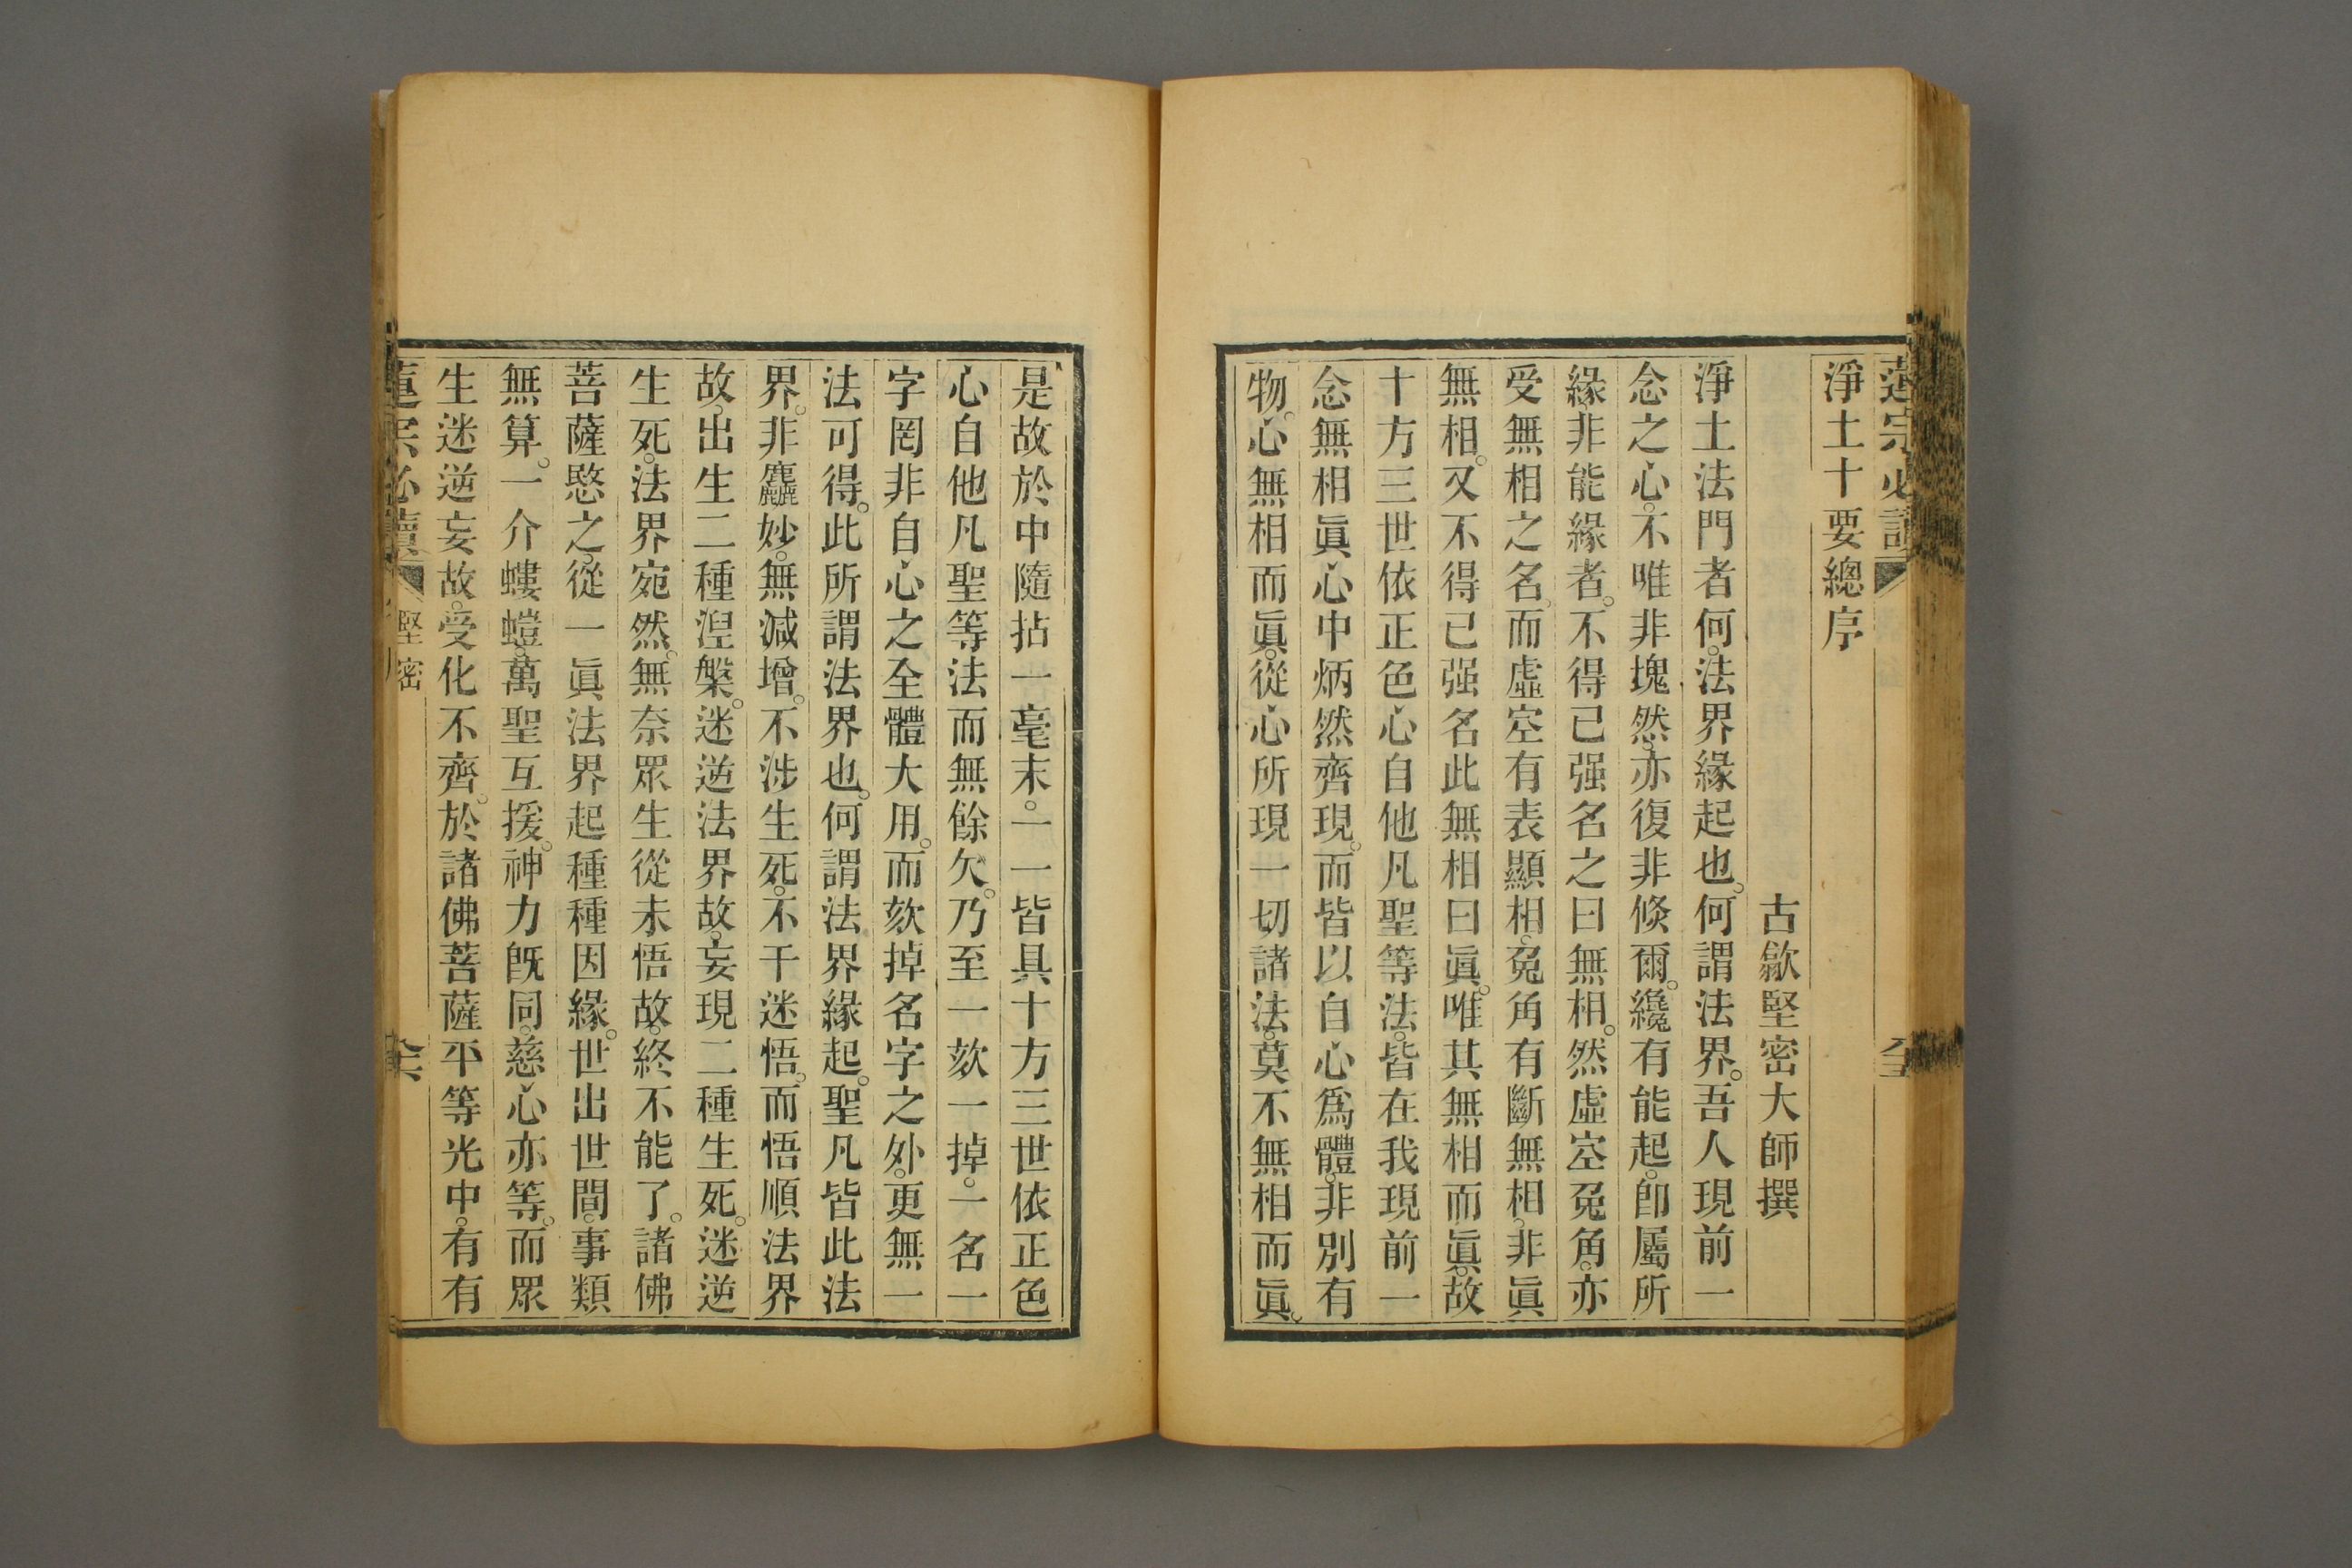 蓮宗必讀
淨土十要總序
古歙堅密大師撰
淨土法門者何。法界緣起也。何謂法界。吾人現前一
念之心。不唯非塊然。亦復非倐爾。纔有能起。卽屬所
緣。非能緣者。不得已强名之曰無相。然虛空兔角。亦
受無相之名。而虛空有表顯相。兔角有斷無相。非眞
無相。又不得已强名此無相曰眞。唯其無相而眞。故
十方三世依正色心自他凡聖等法。皆在我現前一
念無相眞心中炳然齊現。而皆以自心爲體。非別有
物。心無相而眞。從心所現一切諸法。莫不無相而眞。
是故於中隨拈一毫末。一一皆具十方三世依正色
心自他凡聖等法而無餘欠。乃至一欬一掉。一名一
字罔非自心之全體大用。而欬掉名字之外。更無一
法可得。此所謂法界也。何謂法界緣起。聖凡皆此法
界。非麤妙。無減增。不涉生死。不干迷悟。而悟順法界
故。出生二種涅槃。迷逆法界故。妄現二種生死。迷逆
生死。法界宛然。無奈眾生從未悟故。終不能了。諸佛
菩薩愍之。從一眞法界起種種因緣。世出世間。事類
無算。一介螻螘。萬聖互援。神力旣同。慈心亦等。而眾
生迷逆妄故。受化不齊。於諸佛菩薩平等光中。有有
蓮宗必讀
堅密